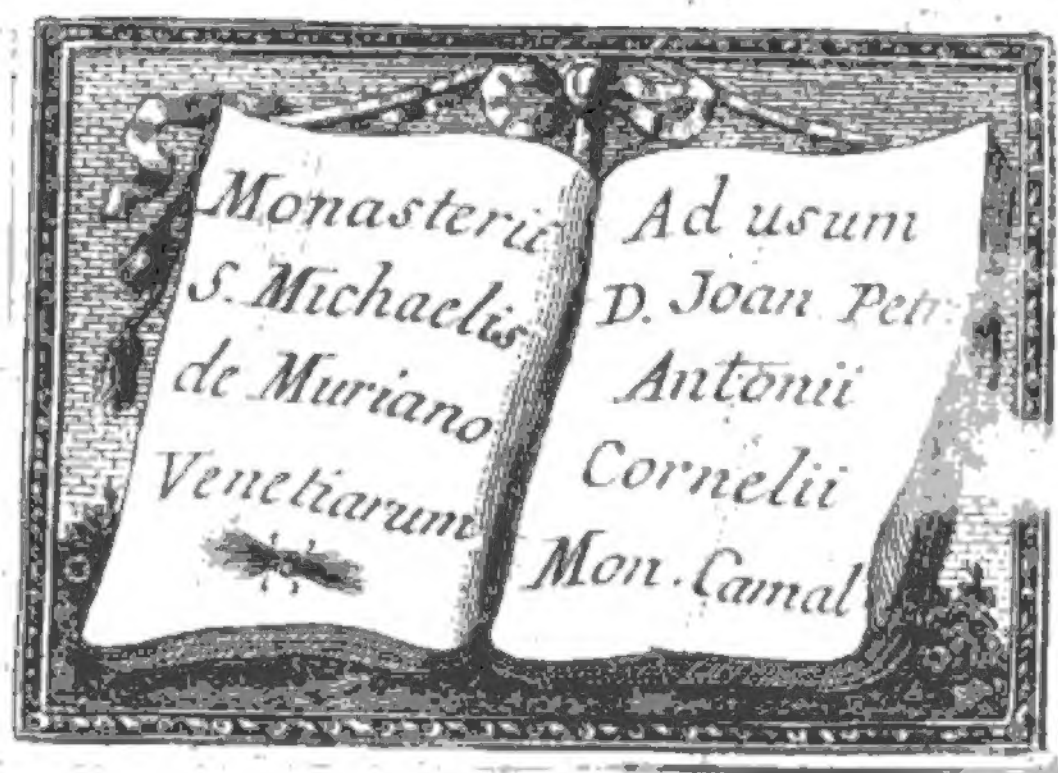 Monasterii
S. Michaelis
de Muriano
Venetiarum
Ad usum
D. Joan Petr.
Antonii
Cornelii
Mon. Camal